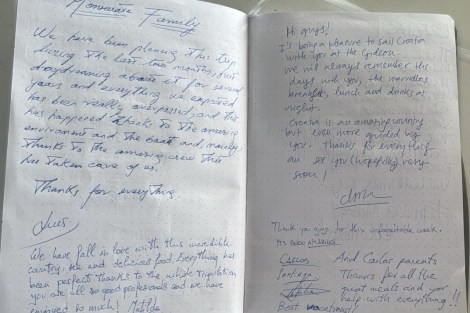 Family
We have been planning this trip
during the last two months, but
daydreaming about it for several
years and everything we expected
has been really overpassed, and this
has happened thanks to the amazing
enviroment and the boat and, mainly
thanks to the amazing crew that
has taken care of us.
Thanks for everything.
We have fall in love with this incredible
country, the and delicious food. Everything has
been perfect thanks to the whole tripulation
you are all so good profesionals and we have
enjoyed so much! Matilda
Hi guys!
It's being a pleasure to sail Croatia
with you at the
We will always remember this
days with you, the marvellous
breakfast, lunch and drinks at
night.
Croatia is an amazing country
but even more guided by
you. Thanks for everything
an see you (hopefully) very
soon!
Thank you guys for this unforgettable week.
It's been
Carlos And Carlos parents
Thanks for all the
great meals and your
help with everything!!
Best